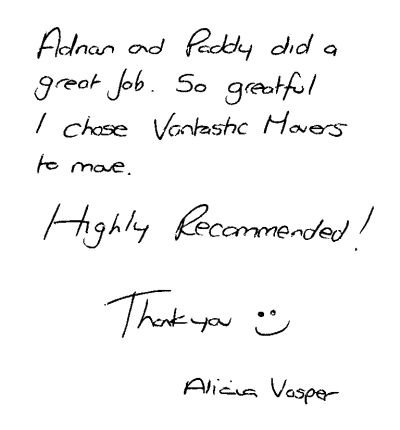 Adnan and Paddy did a
great Job. So greatful
I chose Vantastic Movers
to move.
Highly Recommended!
Thank you :)
Alicia Vosper